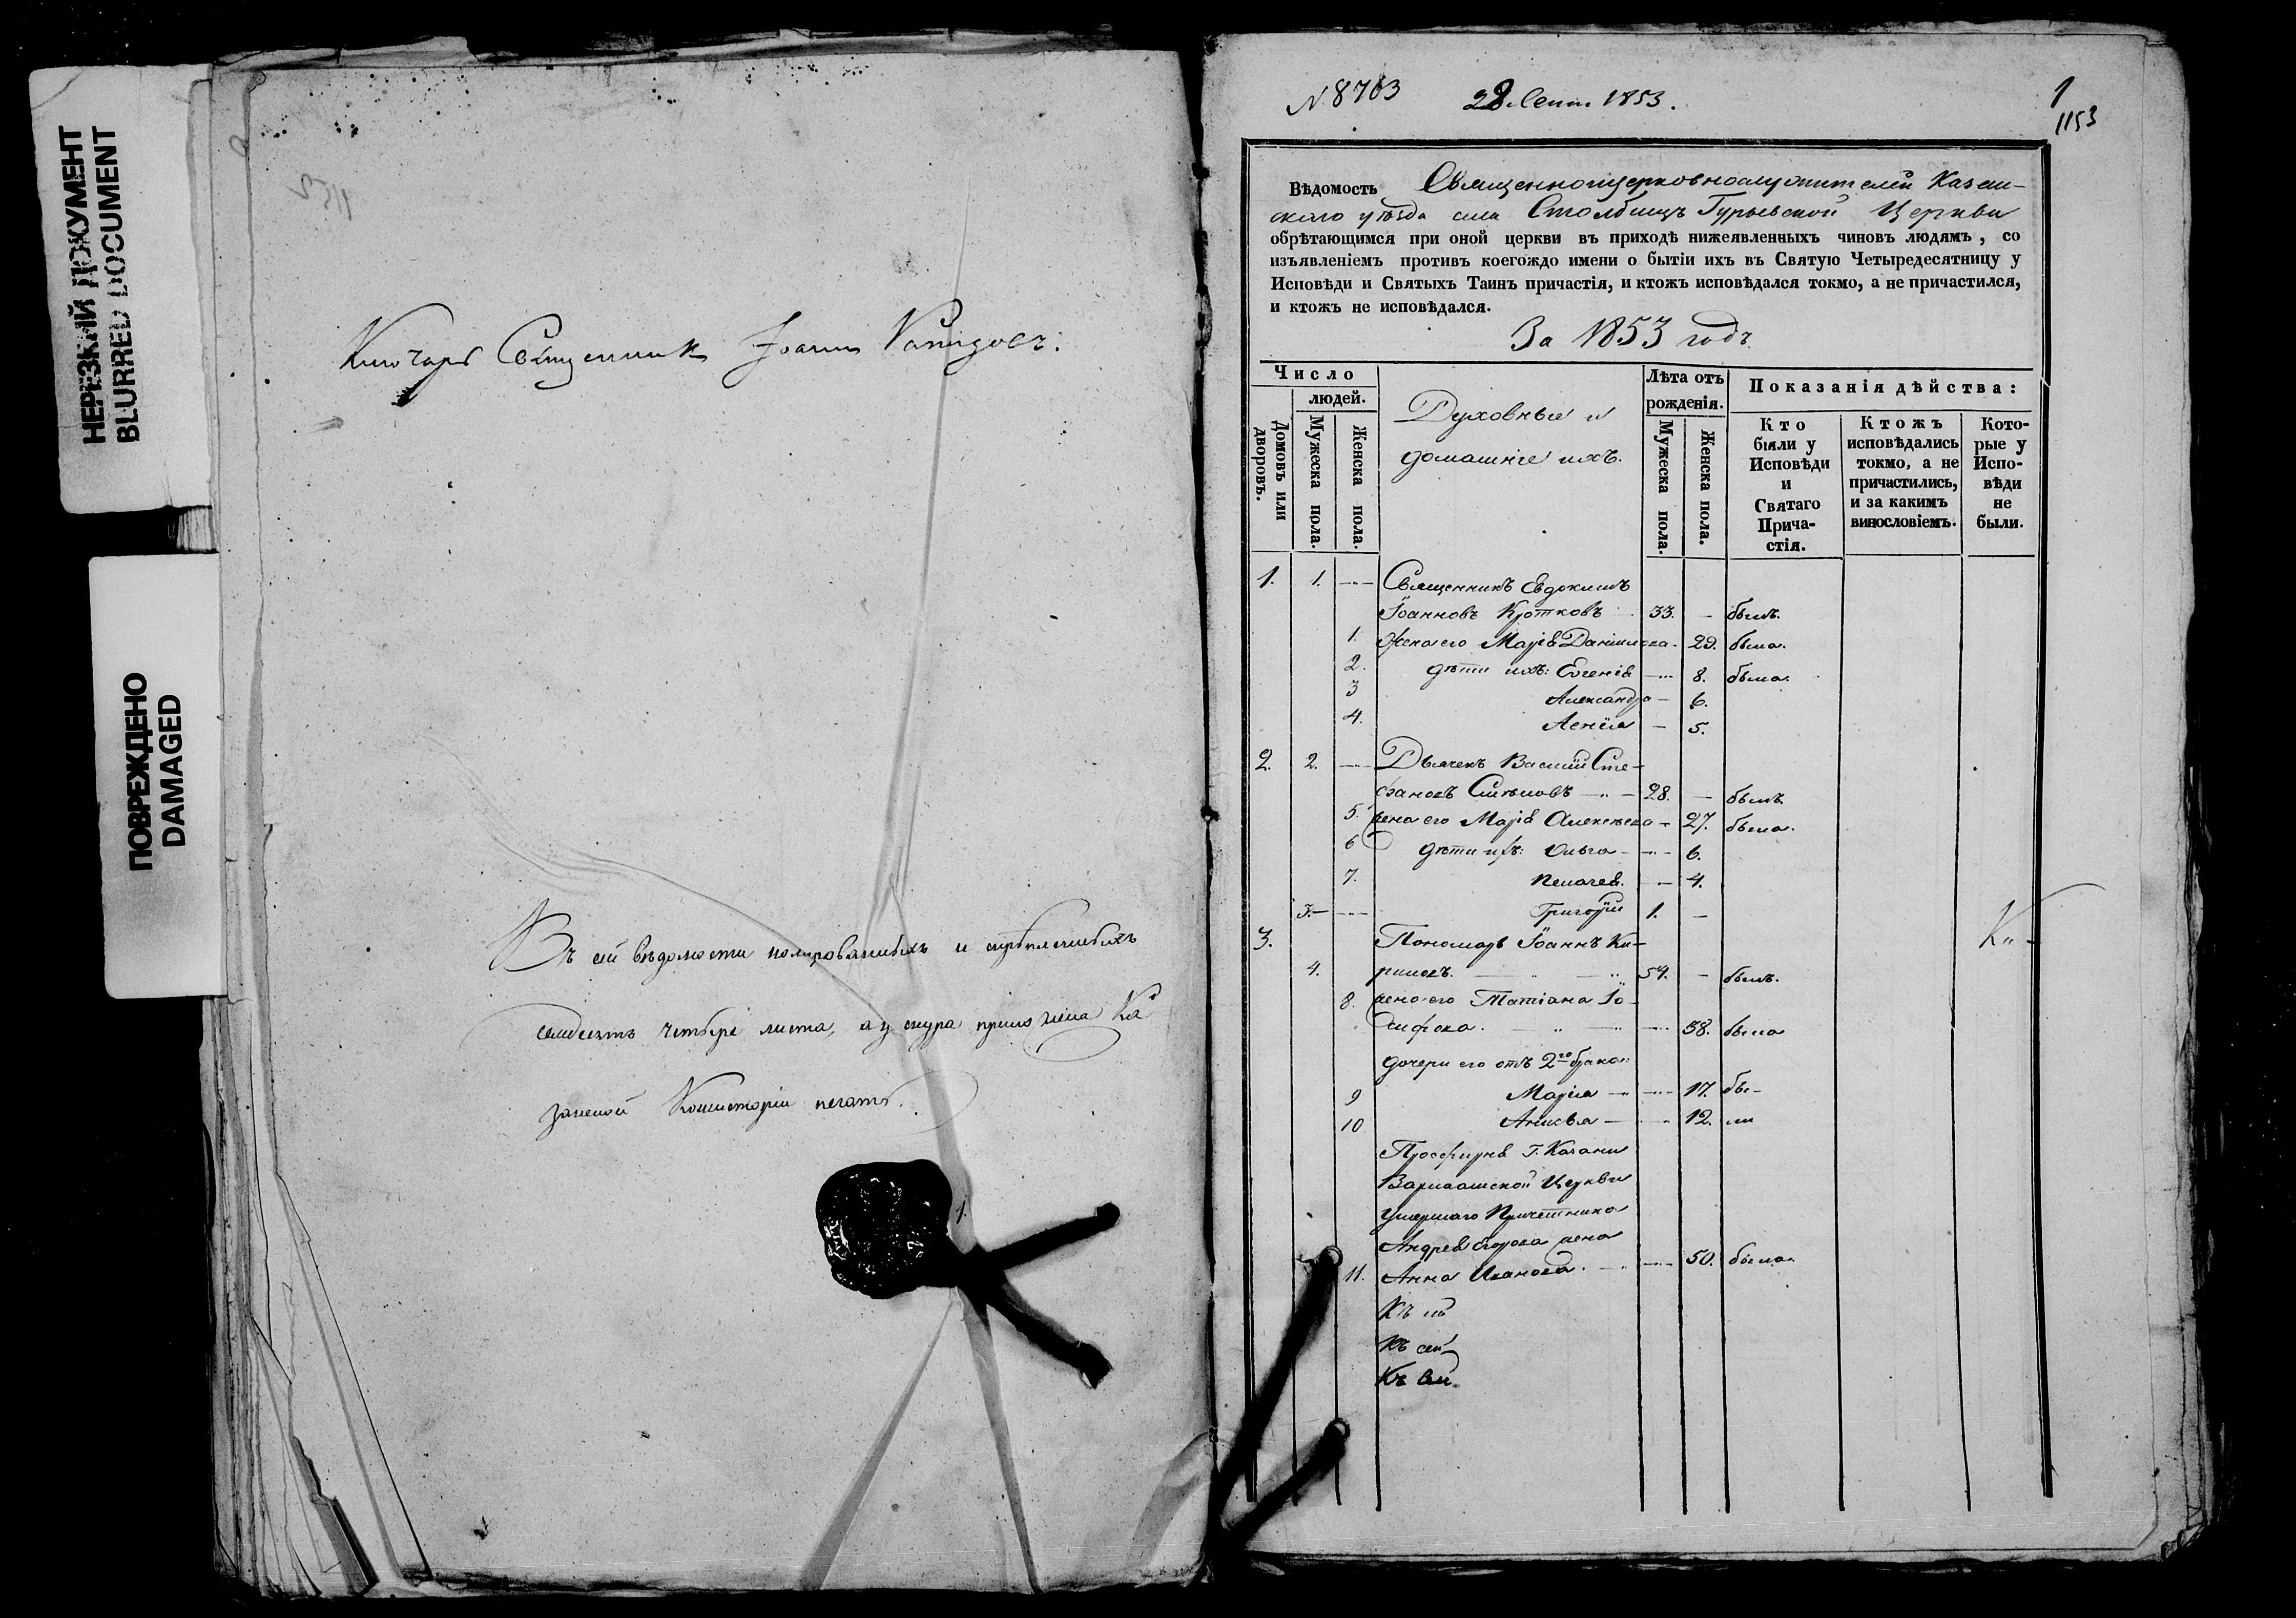 НЕРЕЗКИЙ ДОКУМЕНТ
BLURRED DOCUMENT
ПОВРЕЖДЕНО
DAMAGED
Ключарь Священникъ Іоаннъ
Въ сей вѣдомости нумерованныхъ и скрѣпленныхъ
семдесятъ четыре листа, а у шнура приложена Ка
занской Консисторіи печать.
1.
N 8763 28 Сент. 1853.
1
1153
Вѣдомость Священноцерковнослужителей Казан-
скаго уѣзда села Столбищъ Гурьевской Церкви
обрѣтающимся при оной церкви въ приходѣ нижеявленныхъ чиновъ людямъ, со
изъявленіемъ противъ коегождо имени о бытіи ихъ въ Святую Четыредесятницу у
Исповѣди и Святыхъ Таинъ причастія, и ктожъ исповѣдался токмо, а не причастился,
и ктожъ не исповѣдался.
За 1853 годъ
Число
людей.
Домовъ или дворовъ.
Мужеска пола.
Женска пола.
Духовные и
домашніе ихъ.
Лѣта отъ
рожденія.
Мужеска пола.
Женска пола.
Показанія дѣйства:
Кто
были у
Исповѣди
и
Святаго
Прича-
стія.
Ктожъ
исповѣдались
токмо, а не
причастились,
и за какимъ
винословіемъ.
Кото-
рые у
Испо-
вѣди
не
были.
1. 1. — Священникъ Евдокимъ
Іоанновъ Кротковъ 33. — былъ.
1. Жена его Марія Даніилова. 29. была.
2. дѣти ихъ: Евгенія — 8. была.
3 Александра — 6.
4. Ксенія — 5.
2. 2. — Дьячекъ Василій Сте-
фановъ — 28. — былъ
5. жена его Марія Алексѣева — 27. была.
6 дѣти ихъ: Ольга — 6.
7. Пелагея. — 4.
3. — Григорій 1. —
3. Пономарь Іоаннъ Ки- К
4. риловъ. 54. — былъ.
8. жена его Татіана Іо-
сифова. — 38. была
дочери его отъ 2го брака:
9 Марія — 17. бы-
10 — 12. ли
Просфирня Г. Казани
Варлаамской Церкви
умершаго Причетника
Андрея Егорова жена
11. Анна Иванова. — 50. была.
Къ
Къ сей
Къ сей